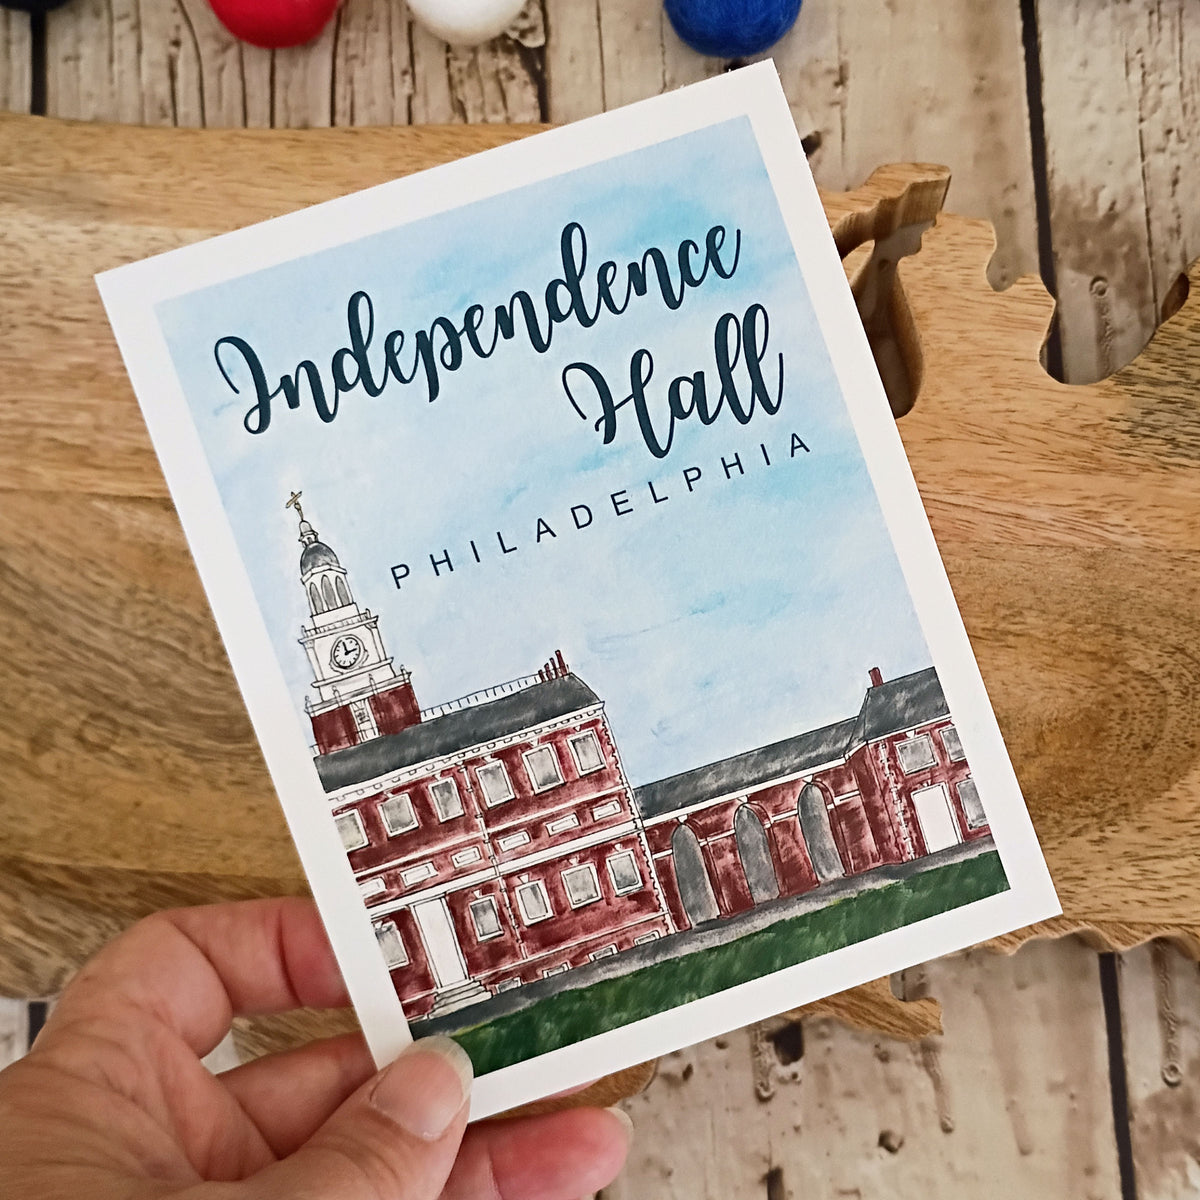 Independence
Hall
PHILADELPHIA